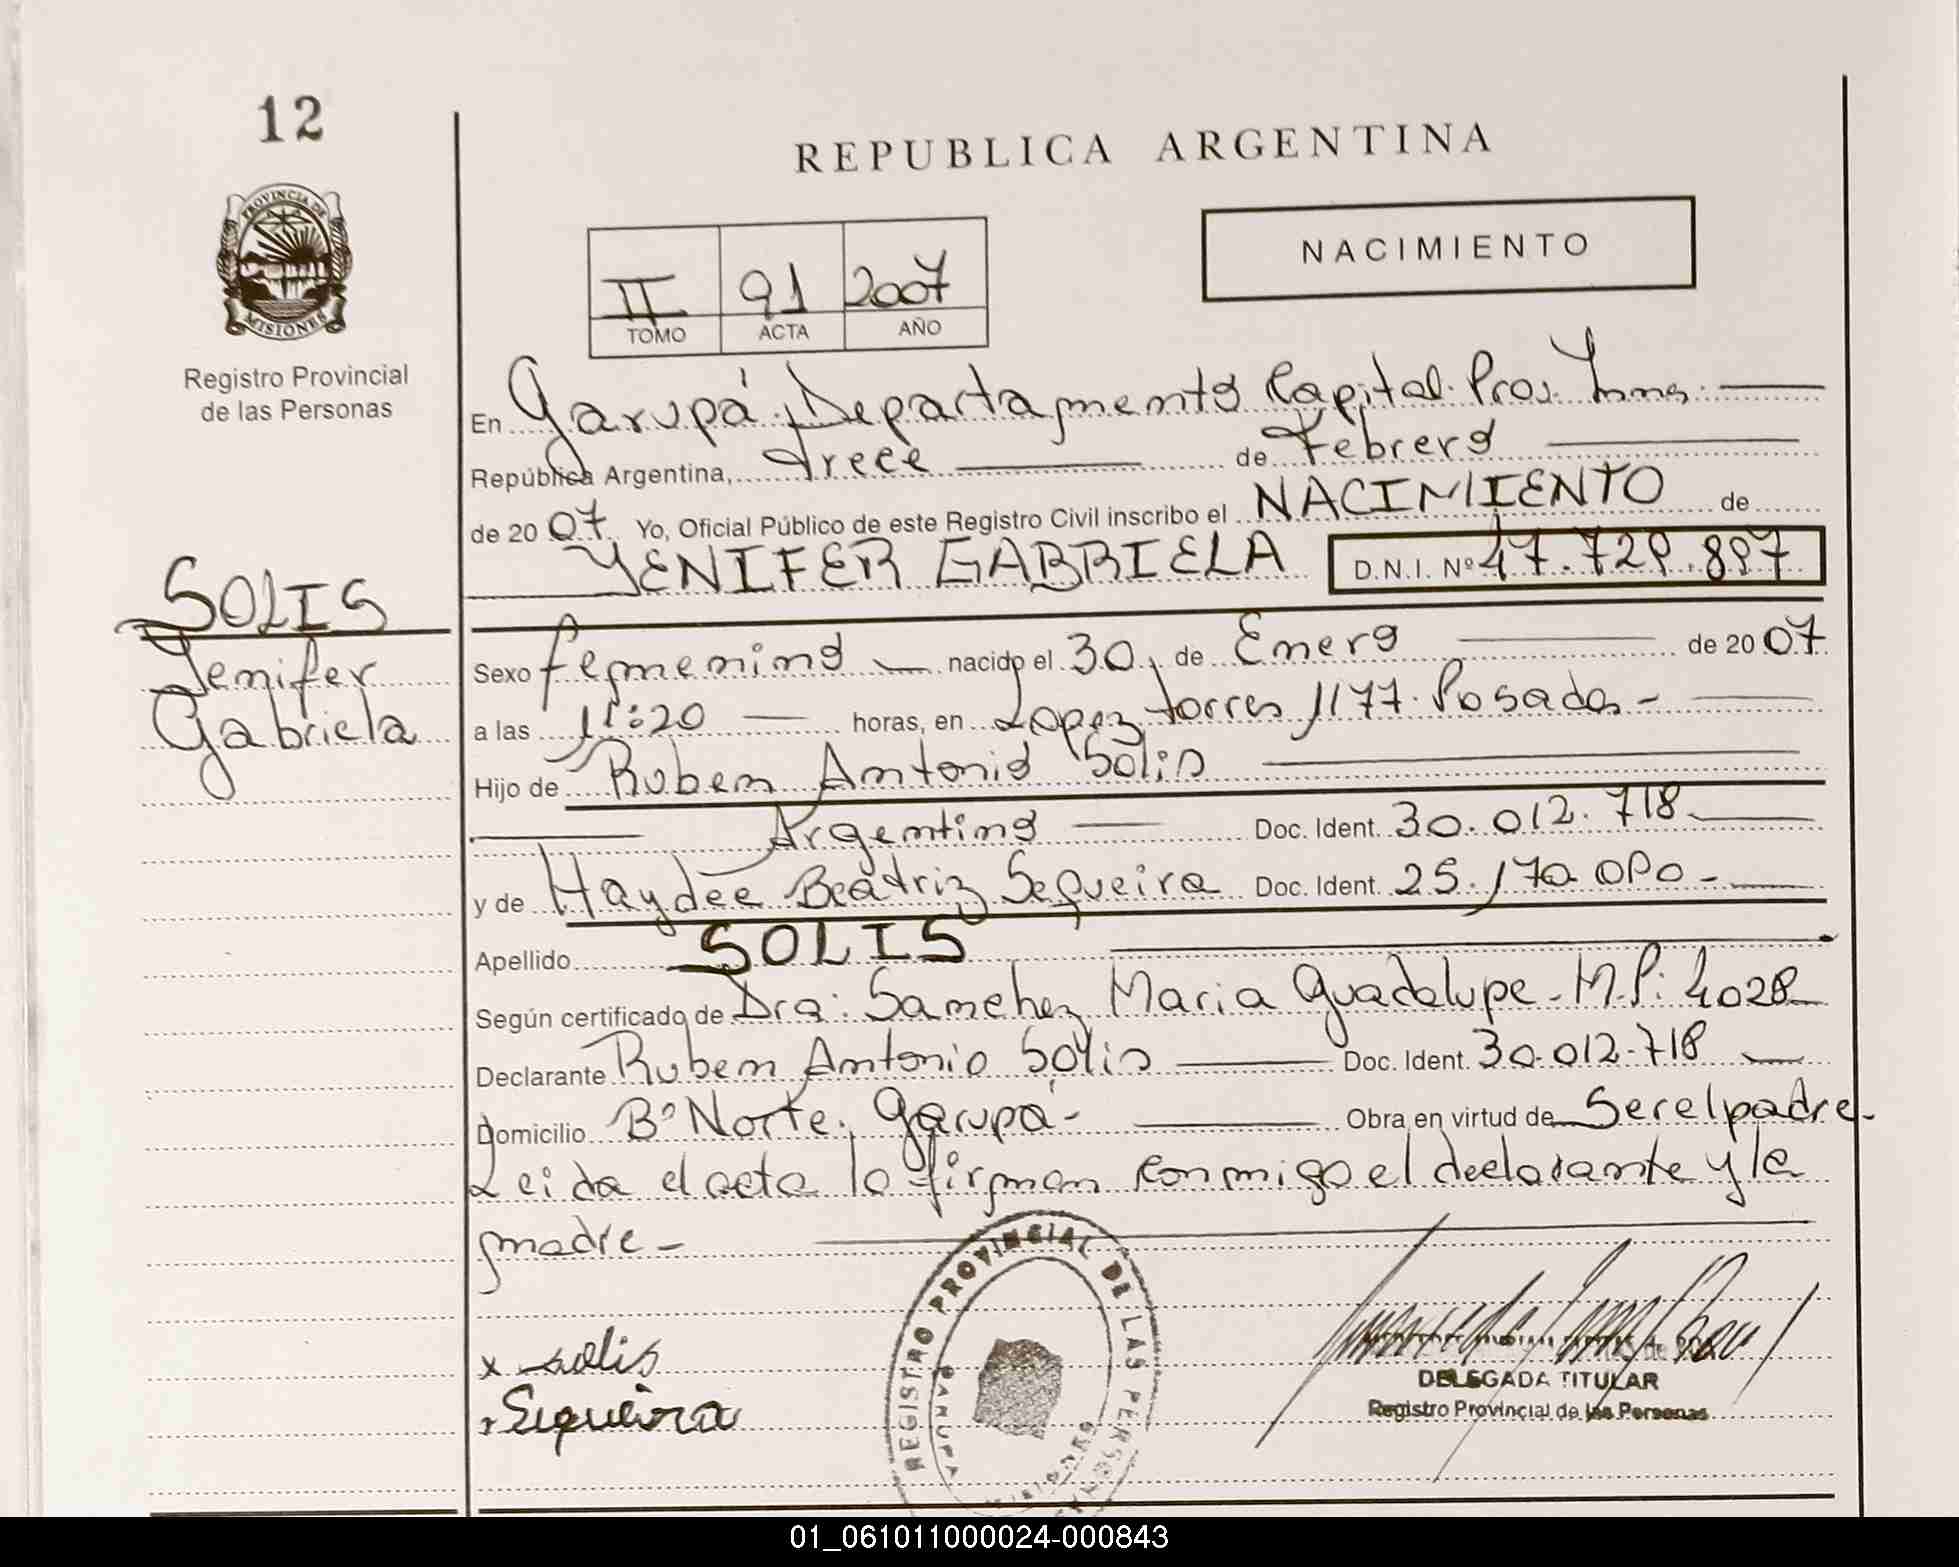 12
REPUBLICA ARGENTINA
PROVINCIA DE
MISIONES
Registro Provincial
de las Personas
NACIMIENTO
II 91 2007
TOMO ACTA AÑO
En Garupá, Departamento Capital. Prov. Mnes.
República Argentina, trece de Febrero
de 2007 Yo, Oficial Público de este Registro Civil inscribo el NACIMIENTO de
YENIFER GABRIELA D.N.I. Nº 47.728.897
SOLIS
Yenifer
Gabriela
Sexo femenino nacido el 30, de Enero de 2007
a las 11:20 horas, en Lopez Torres 1177. Posadas -
Hijo de Ruben Antonio Solis
Argentino Doc. Ident. 30.012.718
y de Haydee Beatriz Sequeira Doc. Ident. 25.170.080 -
Apellido SOLIS
Según certificado de Dra: Sanchez Maria Guadalupe - M.P: 4028
Declarante Ruben Antonio Solis Doc. Ident. 30.012.718
Domicilio Bº Norte, Garupá - Obra en virtud de Ser el padre -
Leida el acta la firman conmigo el declarante y la
madre -
x solis
Sequeira
REGISTRO PROVINCIAL DE LAS PERSONAS
GARUPA
MISIONES
DELEGADA TITULAR
Registro Provincial de las Personas
01_061011000024-000843